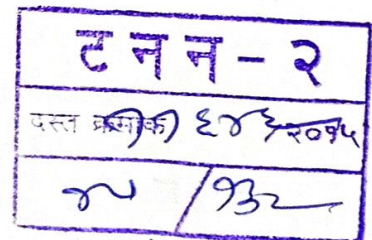 ट न न - २
दस्त क्रमांक ११ ६४६ २०१५
/१३२